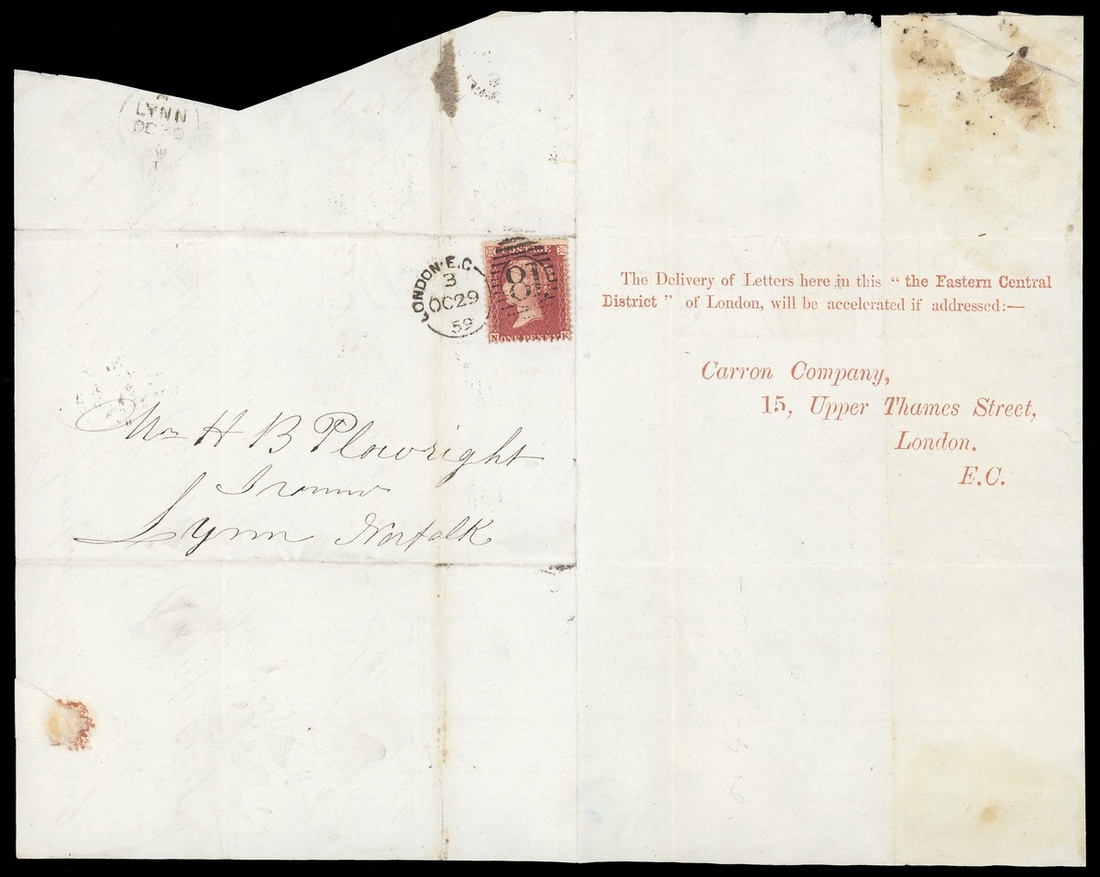 LYNN
LONDON·E.C
3
OC 29
59
POSTAGE
81
N ONE PENNY K
Mr H B Plowright
Lynn Norfolk
The Delivery of Letters here in this " the Eastern Central
District " of London, will be accelerated if addressed:—
Carron Company,
15, Upper Thames Street,
London.
E.C.